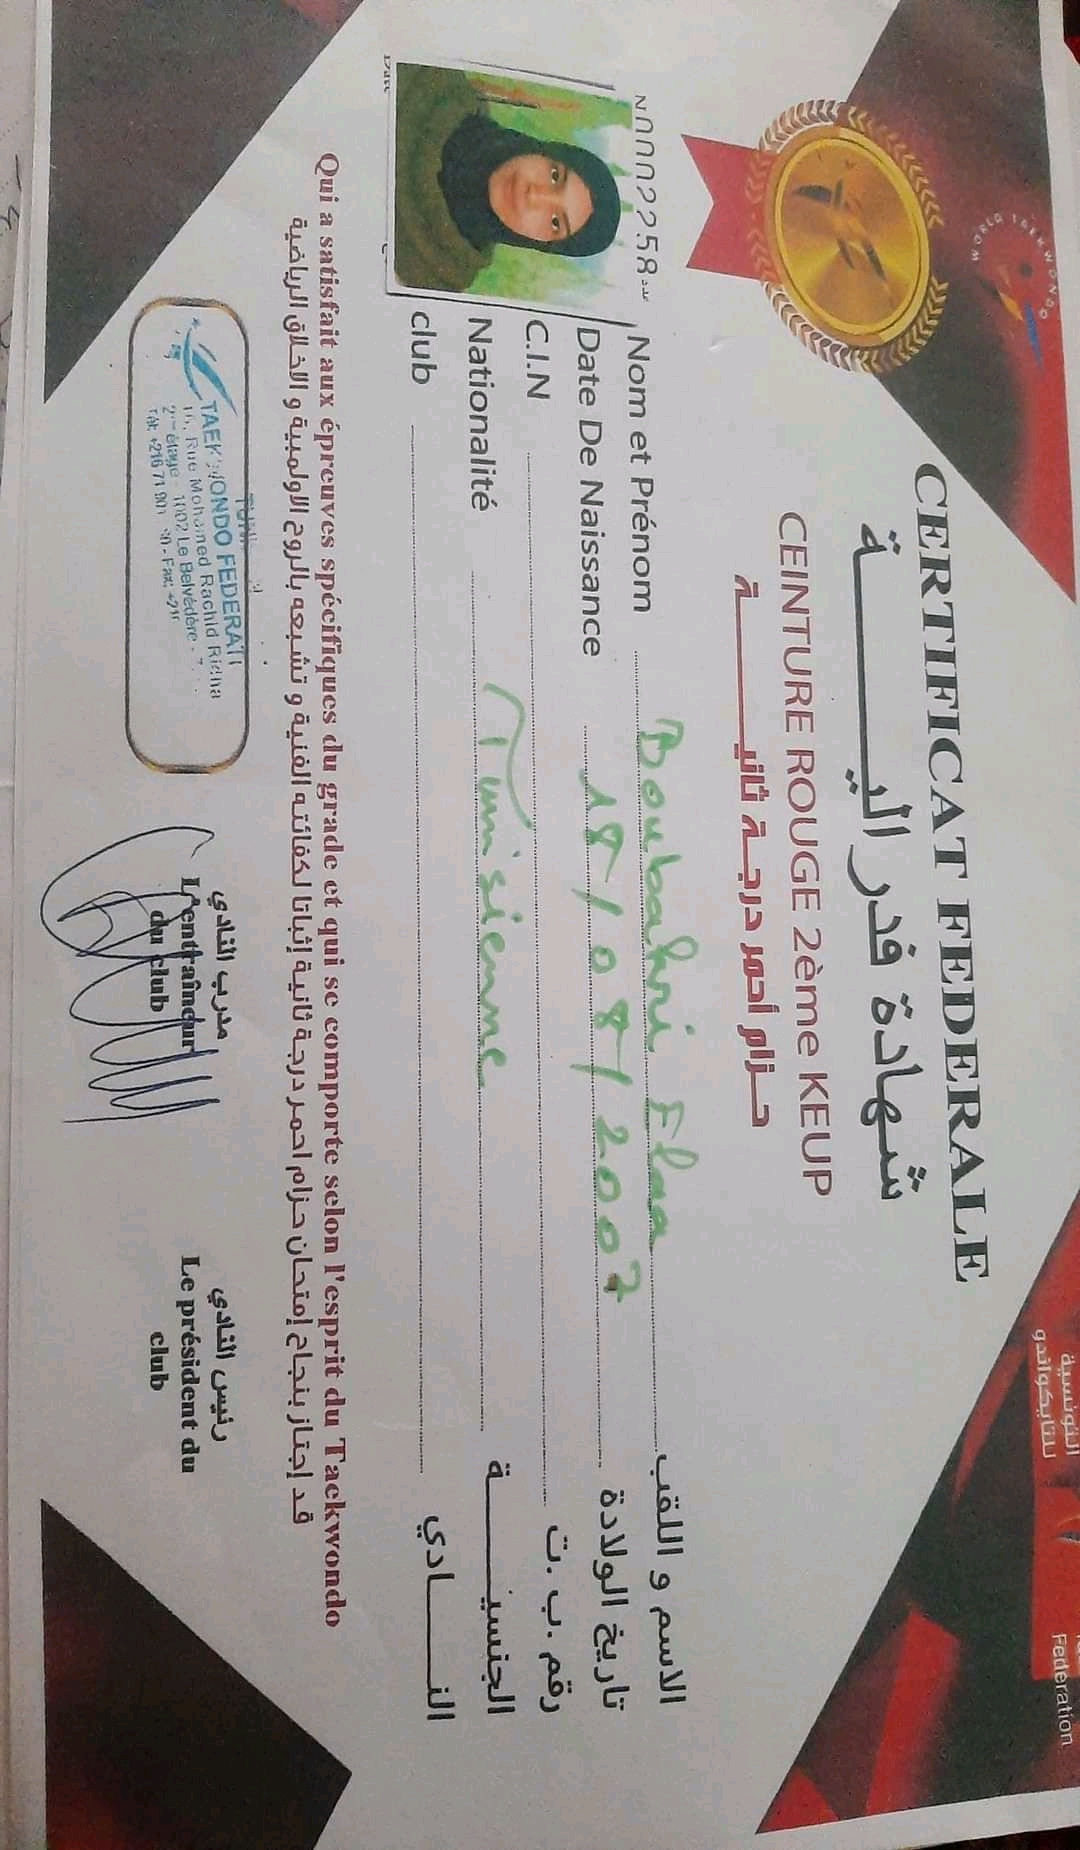 WORLD TAEKWONDO
التونسية
للتايكواندو
Federation
CERTIFICAT FEDERALE
شهادة فدرالية
CEINTURE ROUGE 2ème KEUP
حزام أحمر درجة ثانية
عدد N0002258
Nom et Prénom Boubahri Elaa الاسم و اللقب
Date De Naissance 18/08/2007 تاريخ الولادة
C.I.N رقم .ب .ت
Nationalité Tunisienne الجنسية
club النادي
Date
Qui a satisfait aux épreuves spécifiques du grade et qui se comporte selon l'esprit du Taekwondo
قد إجتاز بنجاح إمتحان حزام احمر درجة ثانية إثباتا لكفائته الفنية و تشبعه بالروح الاولمبية و الاخلاق الرياضية
TAEKWONDO FEDERATI
16, Rue Mohamed Rachid Ridha
2ème étage - 1002 Le Belvédère -
Tél: +216 71 901 - Fax: +216
مدرب النادي
L'entraîneur
du club
رئيس النادي
Le président du
club